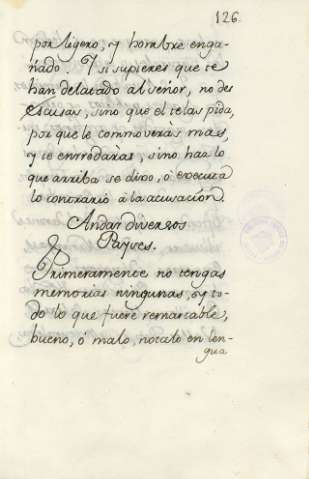 126.
por ligero, y hombre enga-
ñado. Y si supieres que te
han delatado al señor, no des
escusas, sino que el te las pida,
porque le commoveràs mas,
y te enrrodaràs, sino haz lo
que arriba se dixo, ó executa
lo contrario à la acusación.
Andar diversos
Payses.
Primeramente no tengas
memorias ningunas, sy to-
do lo que fuere remarcable,
bueno, ó malo, notalo en len-
gua